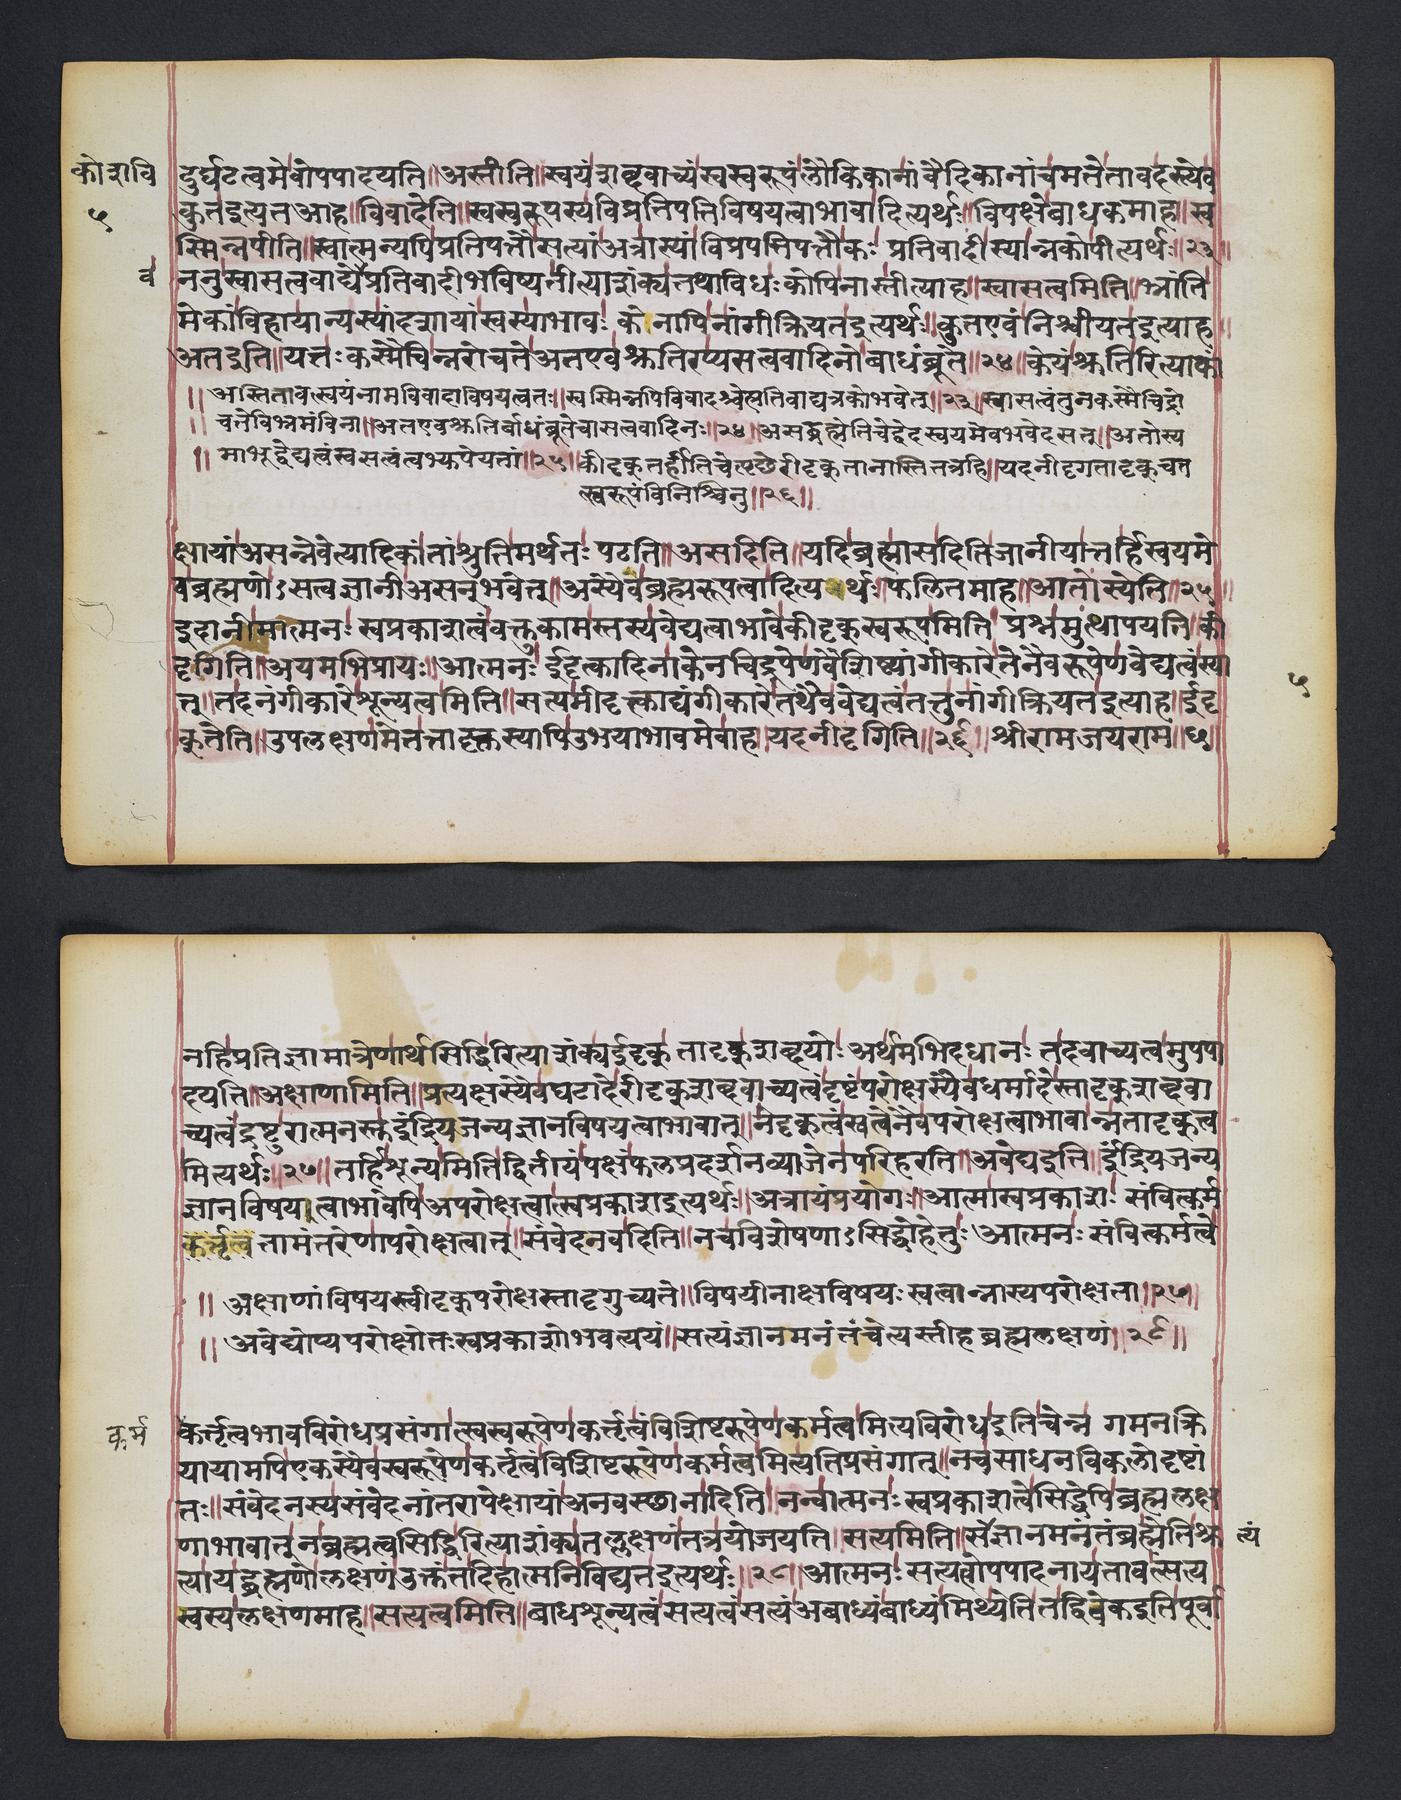 कोशवि
५
दुर्घटत्वमेवोपपादयति॥अस्तीति॥स्वयंशब्दवाच्यंस्वस्वरूपंलौकिकानांवैदिकानांचमतेतावदस्त्येव
कुतइत्यतआह॥विवादेति॥स्वस्वरूपस्यविप्रतिपत्तिविषयत्वाभावादित्यर्थः॥विपक्षेबाधकमाह॥स्व
स्मिन्नपीति॥स्वात्मन्यपिप्रतिपत्तौसत्यांअत्रास्यांविप्रपतिपत्तौकः प्रतिवादीस्यान्नकोपीत्यर्थः॥२३॥
व
ननुस्वासत्ववाद्येप्रतिवादीभविष्यतीत्याशंक्यतथाविधःकोपिनास्तीत्याह॥स्वासत्वमिति॥भ्रांति
मेकांविहायान्यस्यांदशायांस्वस्याभावः केनापिनांगीक्रियतइत्यर्थः॥कुतएवंनिश्चीयतइत्याह॥
अतइति॥यत्तःकस्मैचिन्नरोचतेअतएवश्रुतिरप्यसत्ववादिनोबाधंब्रूते॥२४॥केयंश्रुतिरित्याकां
॥अस्तितावत्स्वयंनामविवादाविषयत्वतः॥स्वस्मिन्नपिविवादश्चेत्प्रतिवाद्यत्रकोभवेत्॥२३॥स्वासत्वंतुनकस्मैचिद्रो
चतेविभ्रमंविना॥अतएवश्रुतिर्बाधंब्रूतेचासत्ववादिनः॥२४॥असद्ब्रह्मेतिचेद्वेदस्वयमेवभवेदसत्॥अतोस्य
॥माभूद्वेद्यत्वंस्वसत्वंत्वभ्युपेयतां॥२५॥कीदृक्तर्हीतिचेत्पृच्छेरीदृक्तानास्तितत्रहि॥यदनीदृगतादृक्चत
त्स्वरूपंविनिश्चिनु॥२६॥
क्षायांअसन्नेवेत्यादिकांतांश्रुतिमर्थतः पठति॥असदिति॥यदिब्रह्मासदितिजानीयात्तर्हिस्वयमे
वब्रह्मणोऽसत्वज्ञानीअसन्भवेत्॥अस्यैवब्रह्मरूपत्वादित्यर्थः॥फलितमाह॥आतोस्येति॥२५॥
इदानीमात्मनः स्वप्रकाशत्वंवक्तुकामस्तस्यवेद्यत्वाभावेकीदृक्स्वरूपमिति प्रश्नमुत्थापयति॥की
दृगिति॥अयमभिप्रायः॥आत्मनः ईदृक्त्वादिनाकेनचिद्रूपेणवैशिष्ट्यांगीकारेतेनैवरूपेणवेद्यत्वंस्या
५
त्॥तदनंगीकारेशून्यत्वमिति॥सत्यमीदृक्त्काद्यंगीकारेतथैववेद्यत्वंतत्तुनांगीक्रियतइत्याह॥ईदृ
क्तेति॥उपलक्षणमेतत्तादृक्तस्यापिउभयाभावमेवाह॥यदनीदृगिति॥२६॥श्रीरामजयराम॥छ॥
नहिप्रतिज्ञामात्रेणार्थसिद्धिरित्याशंक्यईदृक् तादृक्शब्दयोः अर्थमभिदधानः तदवाच्यत्वमुपपा
दयति॥अक्षाणामिति॥प्रत्यक्षस्यैवघटादेरीदृक्शब्दवाच्यत्वंदृष्टंपरोक्षस्यैवधर्मादेस्तादृक्शब्दवा
च्यत्वंद्रष्टुरात्मनस्तुइंद्रियजन्यज्ञानविषयत्वाभावात्॥नेदृक्त्वंस्वत्वेनैवपरोक्षत्वाभावान्नतादृक्त्व
मित्यर्थः॥२७॥तर्हिशून्यमितिद्वितीयंपक्षंफलप्रदर्शनव्याजेनपरिहरति॥अवेद्यइति॥इंद्रियजन्य
ज्ञानविषयात्वाभावेपिअपरोक्षत्वात्स्वप्रकाशइत्यर्थः॥अत्रायंप्रयोगः॥आत्मास्वप्रकाशः संवित्कर्म
तामंतरेणापरोक्षत्वात्॥संवेदनवदिति॥नचविशेषणाऽसिद्धोहेतुः आत्मनः संवित्कर्मत्वे
॥अक्षाणांविषयस्त्वीदृक्परोक्षस्तादृगुच्यते॥विषयीनाक्षविषयःस्वत्वान्नास्यपरोक्षता॥२७॥
॥अवेद्योप्यपरोक्षोतःस्वप्रकाशोभवत्ययं॥सत्यंज्ञानमनंतंचेत्यस्तीहब्रह्मलक्षणं॥२८॥
कर्म
कर्त्तृत्वभावविरोधप्रसंगात्स्वस्वरूपेणकर्त्तृत्वंविशिष्टरूपेणकर्मत्वमित्यविरोधइतिचेन्न गमनक्रि
यायामपिएकस्यैवस्वरूपेणकर्तृत्वंविशिष्टरूपेणकर्मत्वमित्यतिप्रसंगात्॥नचसाधनविकलोदृष्टां
तः॥संवेदनस्यसंवेदनांतरापेक्षायांअनवस्छानादिति॥नन्वात्मनः स्वप्रकाशत्वेसिद्धेपिब्रह्मलक्ष
णाभावात्नब्रह्मत्वसिद्धिरित्याशंक्यतल्लक्षणंतत्रयोजयति॥सत्यमिति॥सज्ञानमनंतंब्रह्मेतिश्रु
त्यं
त्यायद्ब्रह्मणोलक्षणंउक्तंतदिहात्मनिविद्यतइत्यर्थः॥२८॥आत्मनः सत्यत्वोपपादनायतावत्सत्य
त्वस्यलक्षणमाह॥सत्यत्वमिति॥बाधशून्यत्वंसत्यत्वंसत्यंअबाध्यंबाध्यंमिथ्येतितद्विवेकइतिपूर्वा